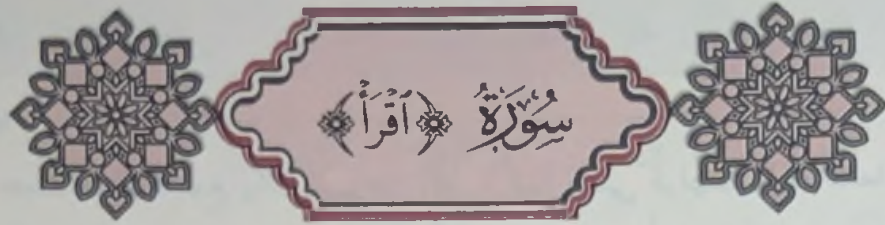 سُورَةُ ﴿ٱقْرَأْ﴾